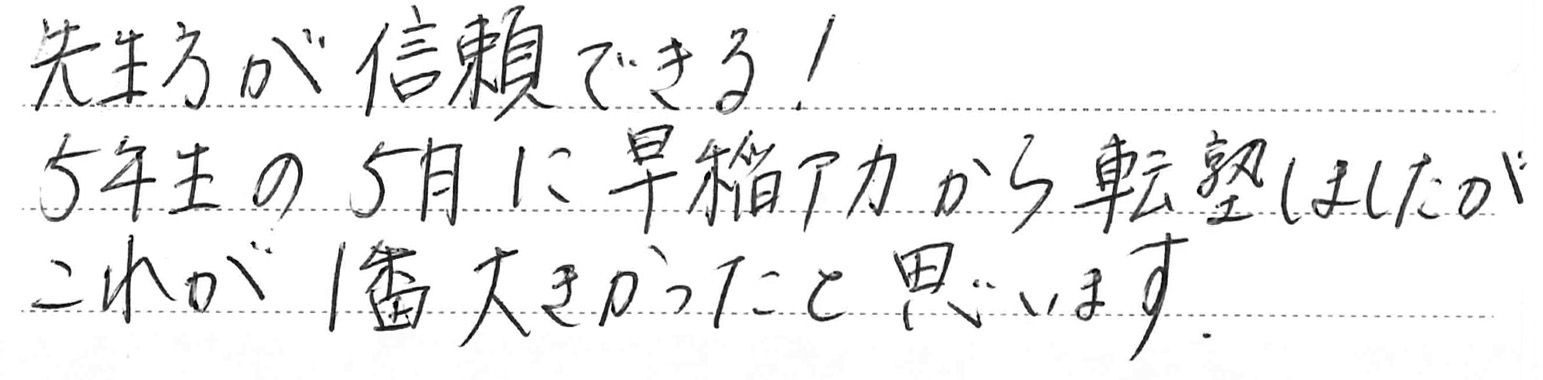 先生方が信頼できる!
5年生の5月に早稲アカから転塾しましたが
これが1番大きかったと思います.